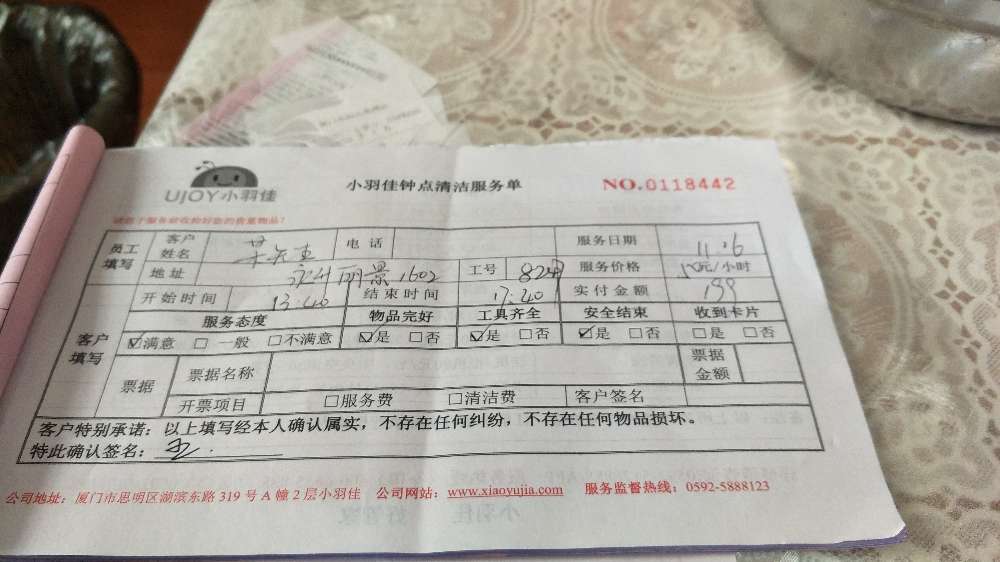 UJOY小羽佳
小羽佳钟点清洁服务单
NO.0118442
请您于服务前收检好您的贵重物品！
员工填写 客户姓名 电话 服务日期 11.26
地址 1602 工号 824 服务价格 元/小时
开始时间 13:40 结束时间 17:40 实付金额 199
客户填写 服务态度 物品完好 工具齐全 安全结束 收到卡片
☑满意 □一般 □不满意 ☑是 □否 ☑是 □否 ☑是 □否 □是 □否
票据 票据名称 票据金额
开票项目 □服务费 □清洁费 客户签名
客户特别承诺：以上填写经本人确认属实，不存在任何纠纷，不存在任何物品损坏。
特此确认签名：
公司地址：厦门市思明区湖滨东路 319 号 A 幢 2 层小羽佳 公司网站：www.xiaoyujia.com 服务监督热线：0592-5888123